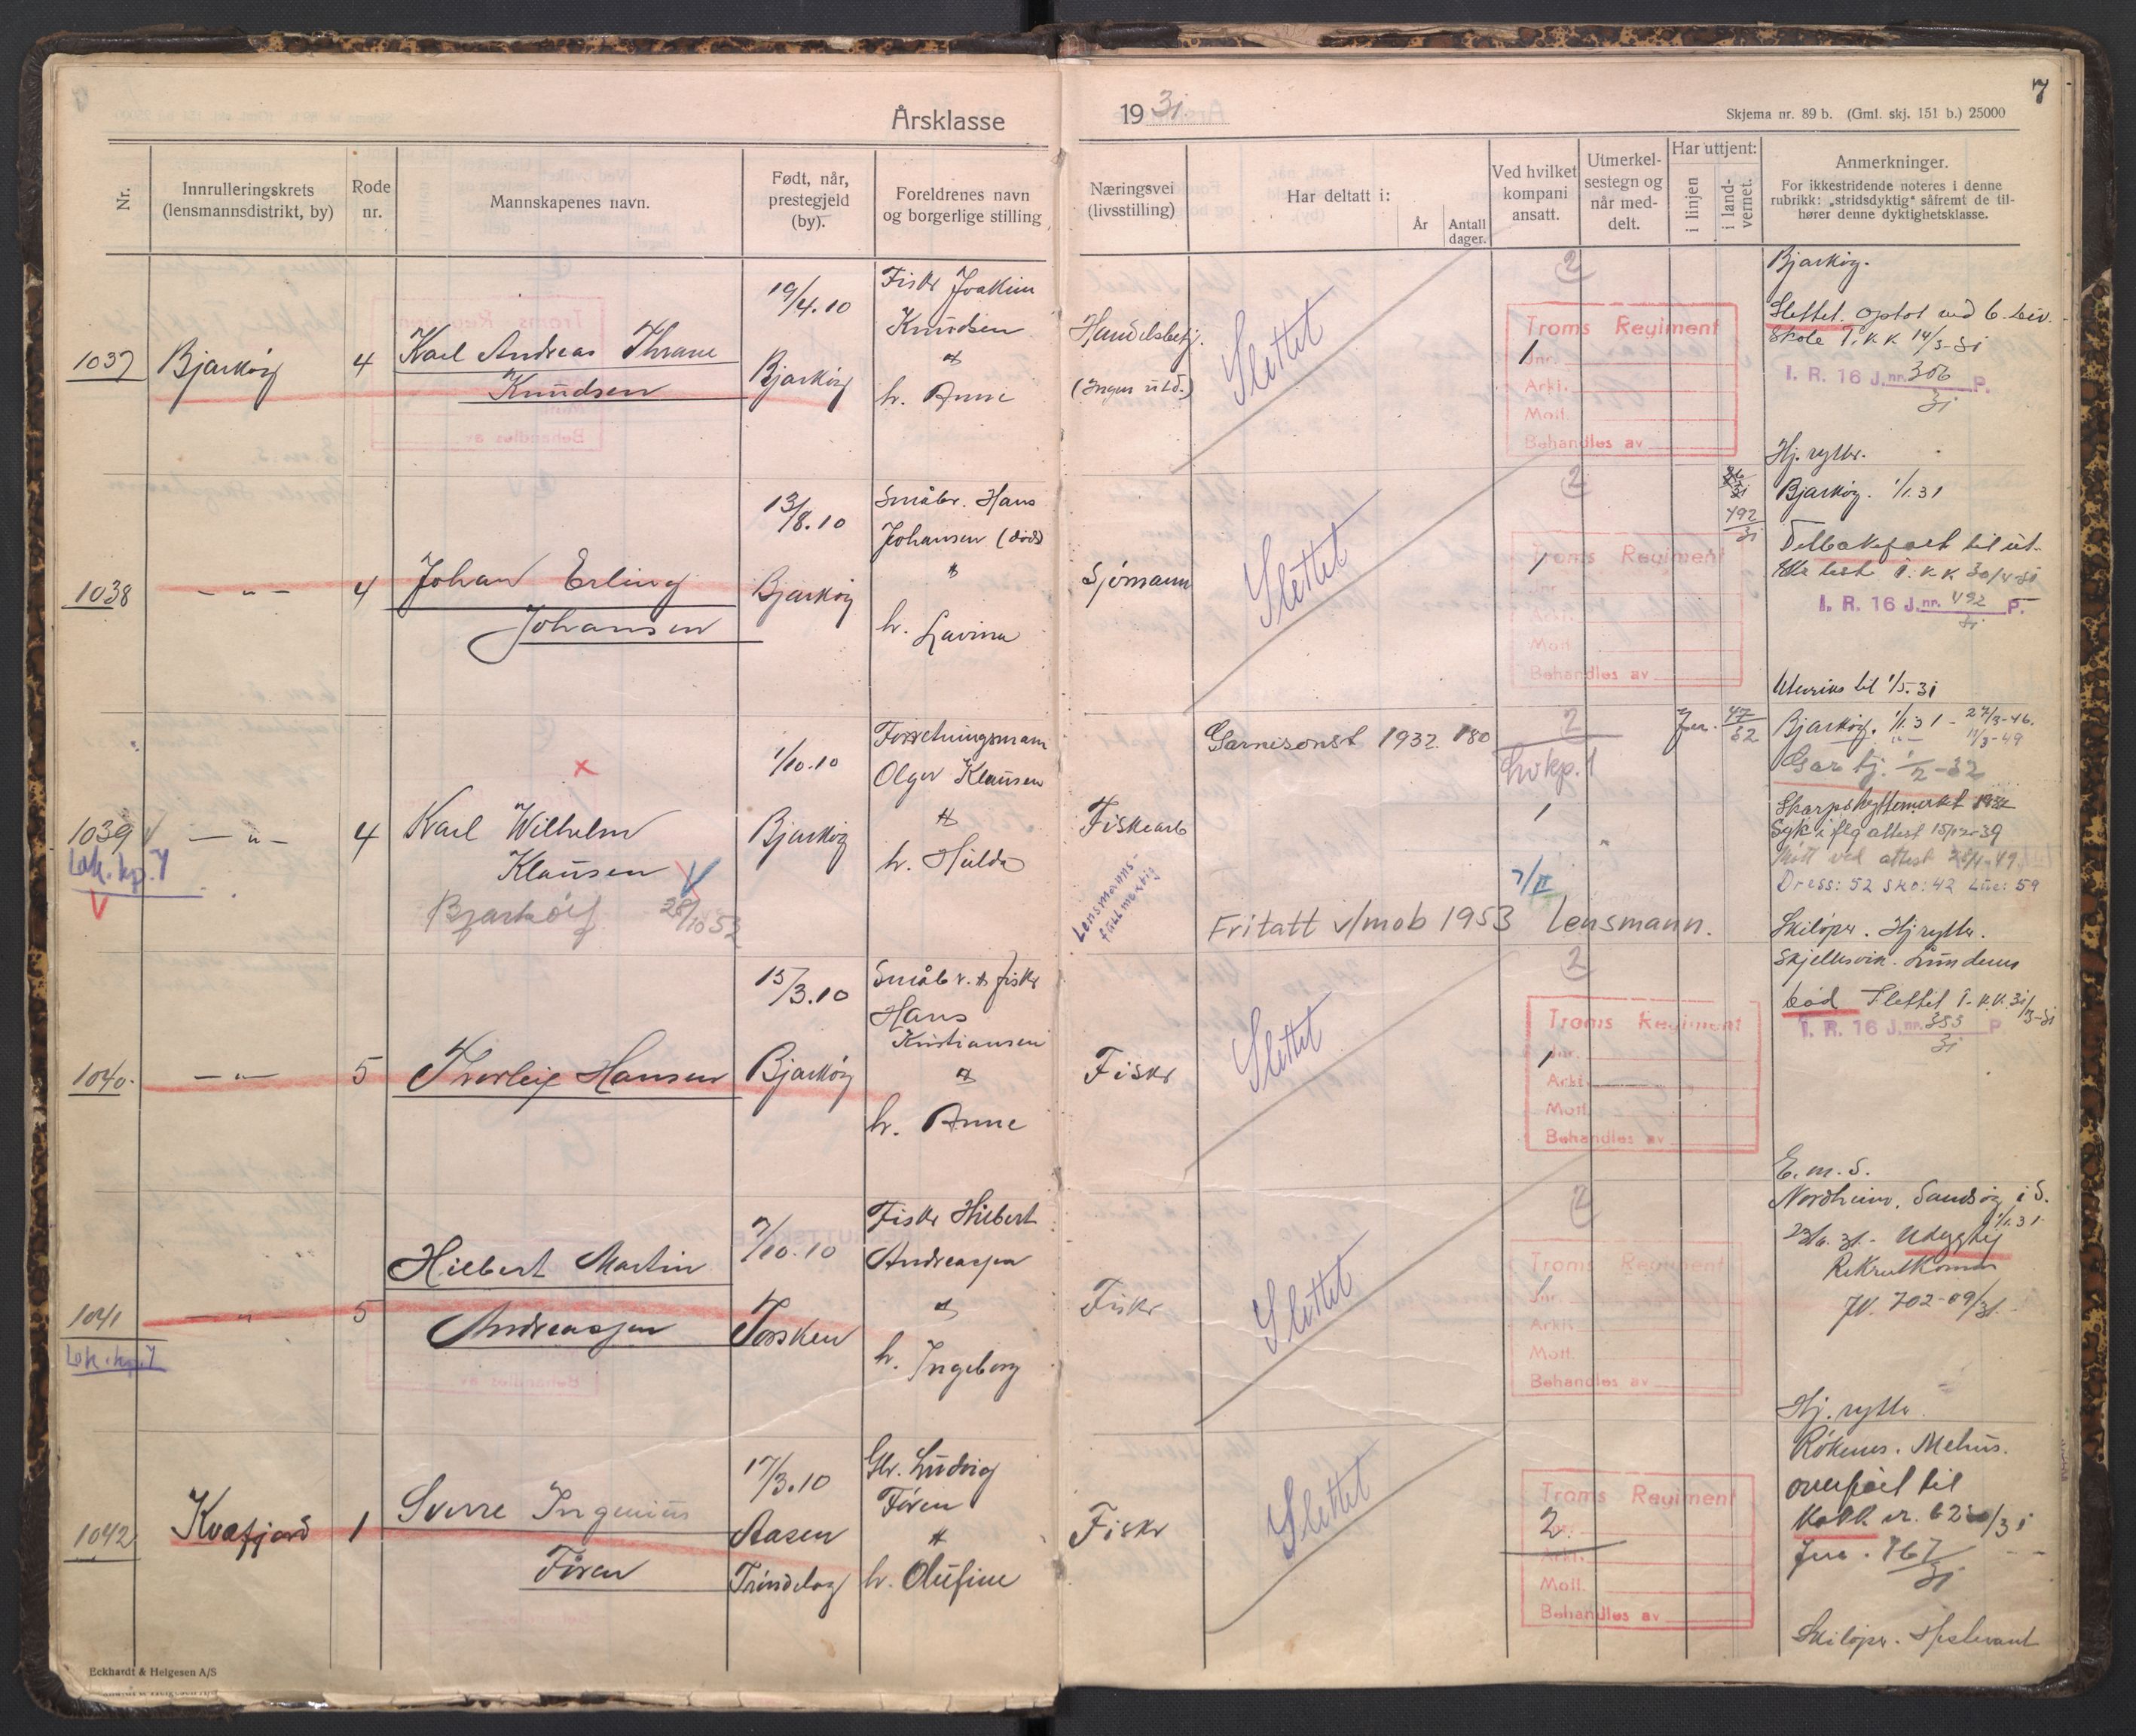 Årsklasse
1931
7
Skjema nr. 89 b. (Gml. skj. 151 b.) 25000
Nr.
Innrulleringskrets
(lensmannsdistrikt, by)
Rode
nr.
Mannskapenes navn.
Født, når,
prestegjeld
(by).
Foreldrenes navn
og borgerlige stilling
Næringsvei
(livsstilling)
Har deltatt i:
År
Antall
dager.
Ved hvilket
kompani
ansatt.
Utmerkel-
sestegn og
når med-
delt.
Har uttjent:
i linjen
i land-
vernet.
Anmerkninger.
For ikkestridende noteres i denne
rubrikk: „stridsdyktig“ såfremt de til-
hører denne dyktighetsklasse.
1037
Bjarköy
4
Karl Andreas Thrane
Knudsen
19/4.10
Bjarköy
Fisker Joakim
Knudsen
h. Anne
Handelsbetj.
(Ingen utd.)
Slettet
2
1
Troms Regiment
Jnr.
Arki.
Mott.
Behandles av
Bjarköy.
Slettet. Optat ved 6. Div.
Skole T.k.k. 14/3-31
I. R. 16 J.nr. 306 P.
31
Hj. rytter.
1038
— " —
4
Johan Erling
Johansen
13/8.10
Bjarköy
Småbr. Hans
Johansen (död)
h. Lavina
Sjömann
Slettet
2
1
Troms Regiment
Jnr.
Arki.
Mott.
Behandles av
492
31
Bjarköy. 1/1.31
I. R. 16 J.nr. 492 P.
31
Utenriks til 1/5.31
1039
Lok. kp. 7
— " —
4
Karl Wilhelm
Klausen
Bjarköy
28/10 52
1/10.10
Bjarköy
Forretningsmann
Olger Klausen
h. Hulda
Fiskearb
Lensmanns-
fullmektig
Garnisonst 1932. 180
2
1
7/II
47
62
Fritatt v/mob 1953 Lensmann.
Bjarköy. 1/1.31 - 27/3-46.
11/3-49
Skarpskyttermerket 1932
Syk i flg attest 15/12-39
Møtt ved attest
Dress: 52 Sko: 42 Lue: 59
Skilöper. Hj rytter.
1040.
— " —
5
Thorleif Hansen
15/3.10
Bjarköy
Småbr. & fisker
Hans
Kristiansen
h. Anne
Fisker
Slettet
2
1
Troms Regiment
Jnr.
Arki.
Mott.
Behandles av
Skjellesvik. Lundenes
död Slettet T.k.k. 31/3-31
I. R. 16 J.nr. 353 P.
31
E. m. S.
1041
Lok. kp. 7
— " —
5
Hilbert Martin
Andreassen
7/10.10
Torsken
Fisker Hilbert
Andreassen
h. Ingeborg
Fisker
Slettet
2
1
Troms Regiment
Jnr.
Arki.
Mott.
Behandles av
Nordheim, Sandsöy i S.
1/1.31
23/6.31. Udyktig
Rekrutkomm
JN. 702-09/31.
Hj. rytter
1042
Kvæfjord
1
Sverre Ingenius
Fören
17/3.10
Aasen
Tröndelag
Gbr. Ludvig
Fören
h. Olufine
Fisker
Slettet
2.
Troms Regiment
Arki.
Mott.
Behandles av
Rökenes. Melhus.
overfört til
Jnr. 767
31
Skilöper. Hestevant
Eckhardt & Helgesen A/S